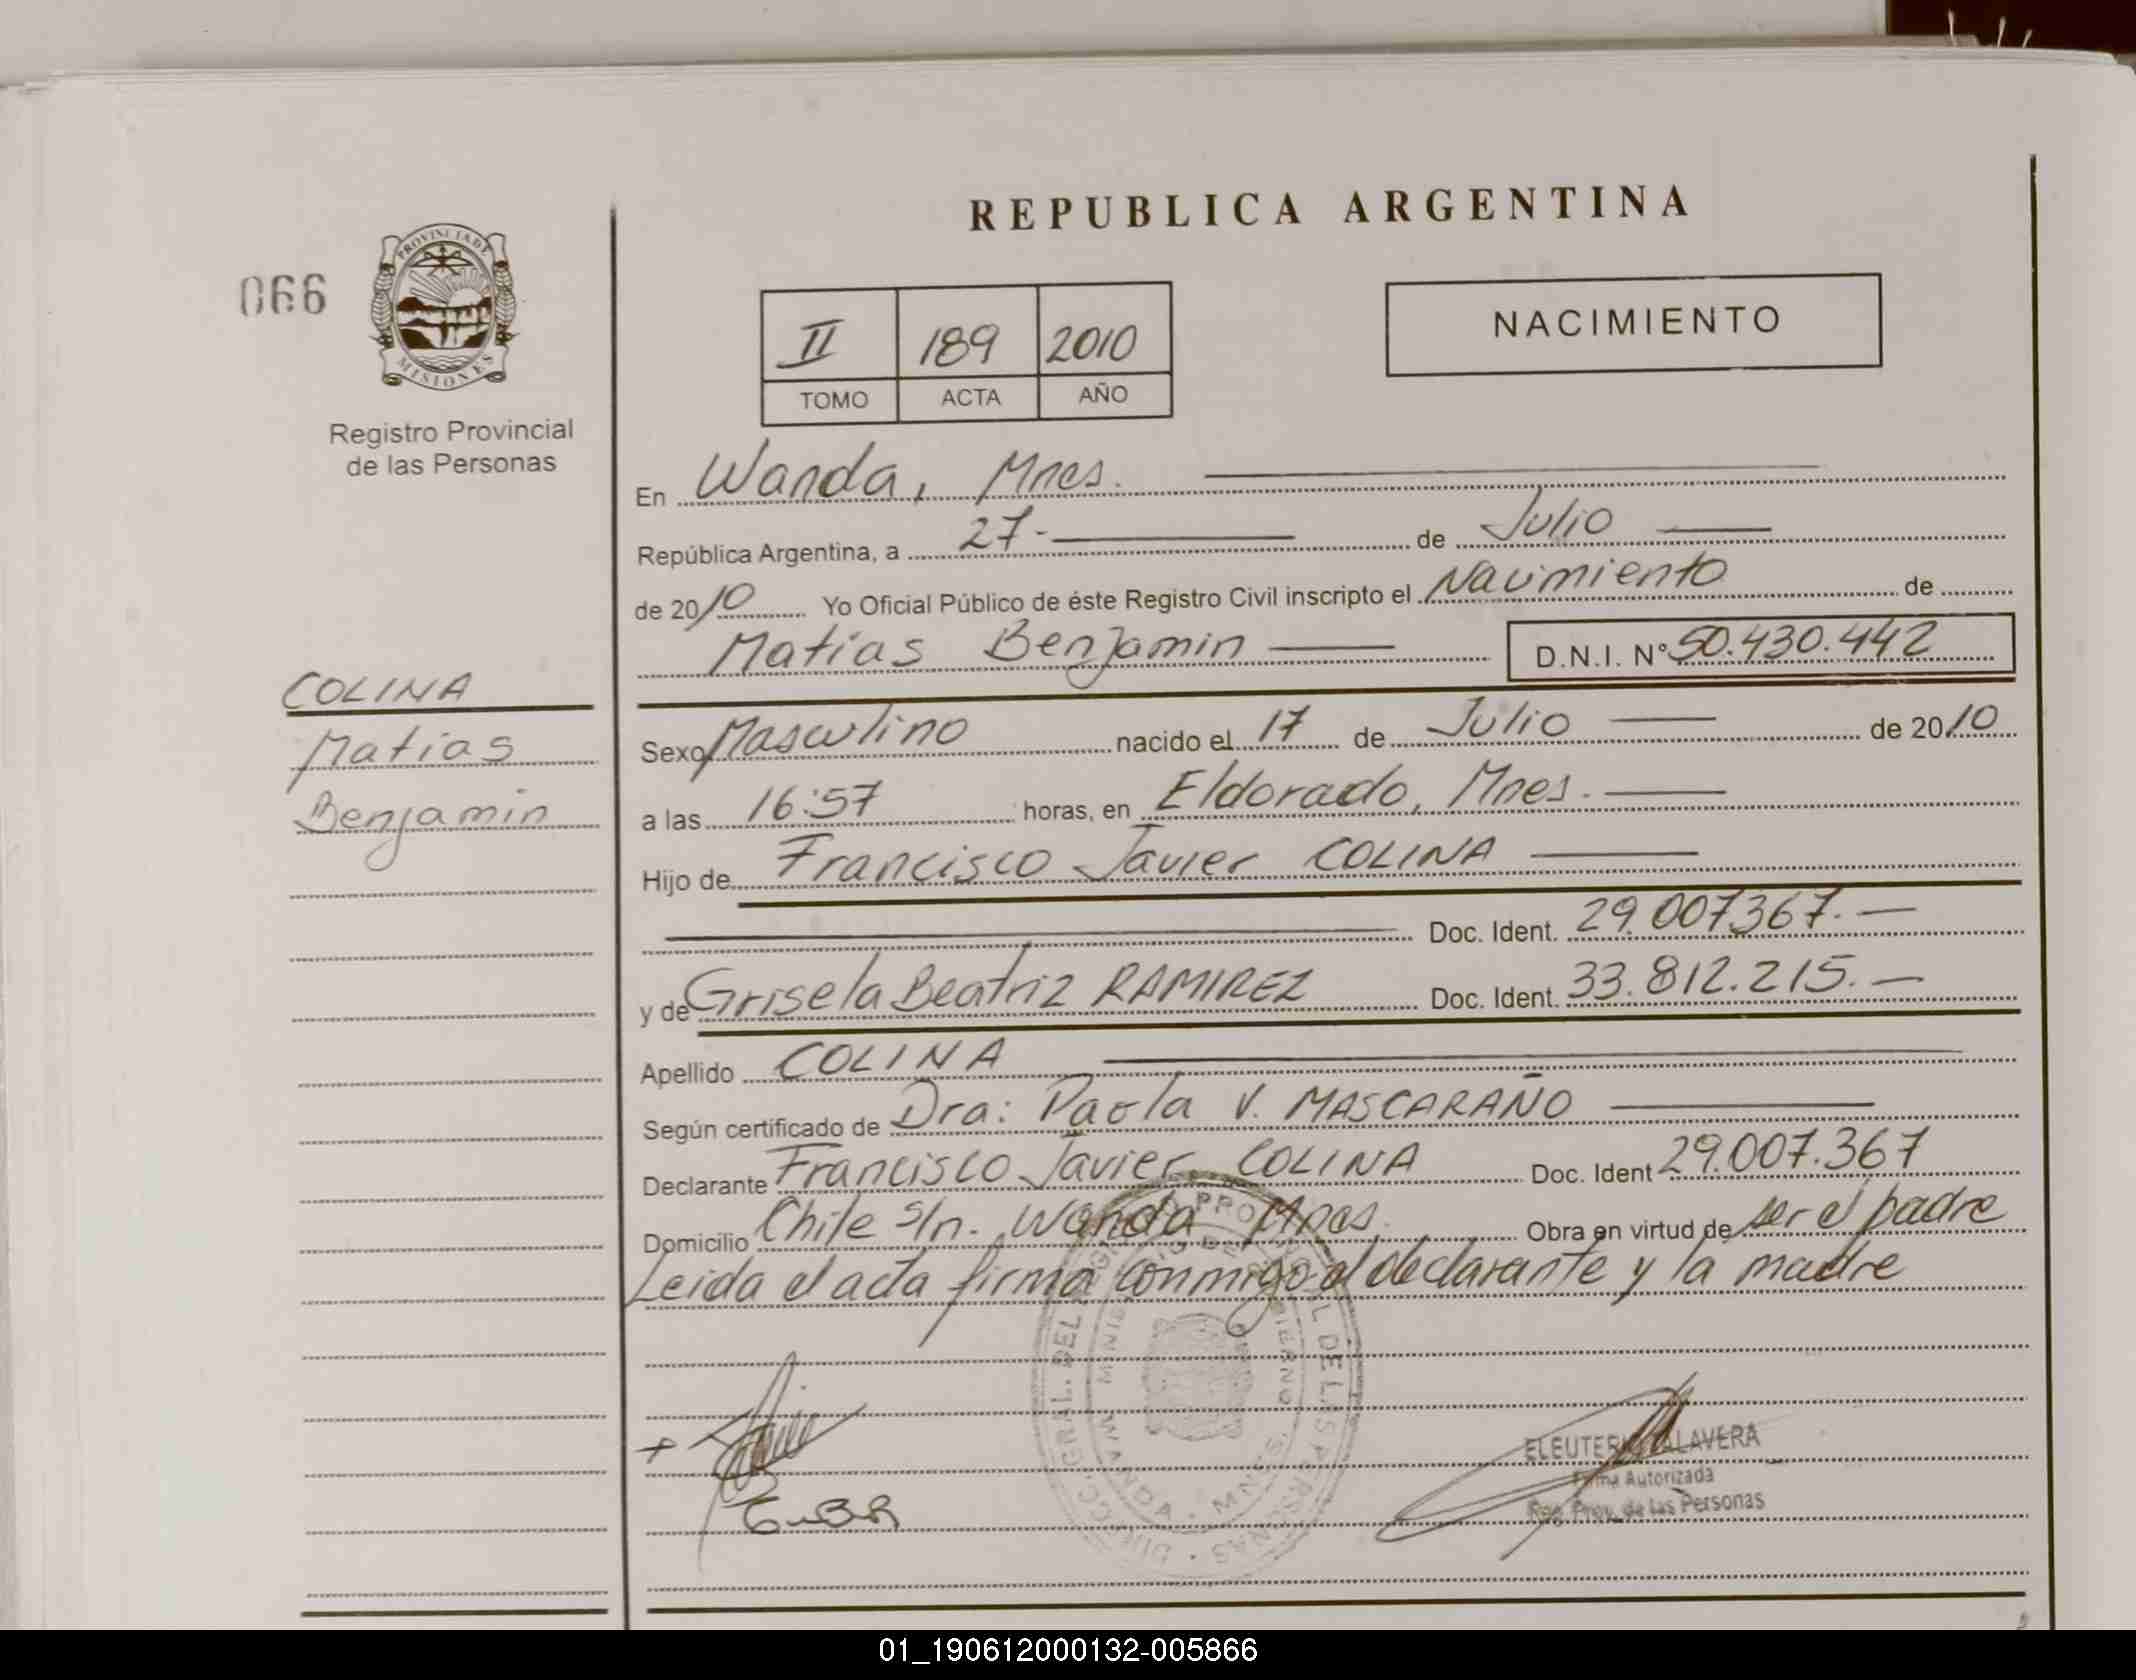 REPUBLICA ARGENTINA
066
PROVINCIA DE
MISIONES
Registro Provincial
de las Personas
II 189 2010
TOMO ACTA AÑO
NACIMIENTO
COLINA
Matias
Benjamin
En Wanda, Mnes.
República Argentina, a 27- de Julio
de 2010 Yo Oficial Público de éste Registro Civil inscripto el Nacimiento de
Matias Benjamin D.N.I. N° 50.430.442
Sexo Masculino nacido el 17 de Julio de 2010
a las 16:57 horas, en Eldorado, Mnes.
Hijo de Francisco Javier COLINA
Doc. Ident. 29.007367.-
y de Grisela Beatriz RAMIREZ Doc. Ident. 33.812.215.-
Apellido COLINA
Según certificado de Dra: Paola V. MASCARAÑO
Declarante Francisco Javier COLINA Doc. Ident 29.007.367
Domicilio Chile s/n. Wanda Mnes. Obra en virtud de ser el padre
Leida el acta firma conmigo el declarante y la madre
WANDA - MNES.
G.B.R
ELEUTERIO TALAVERA
Firma Autorizada
Reg. Prov. de las Personas
01_190612000132-005866